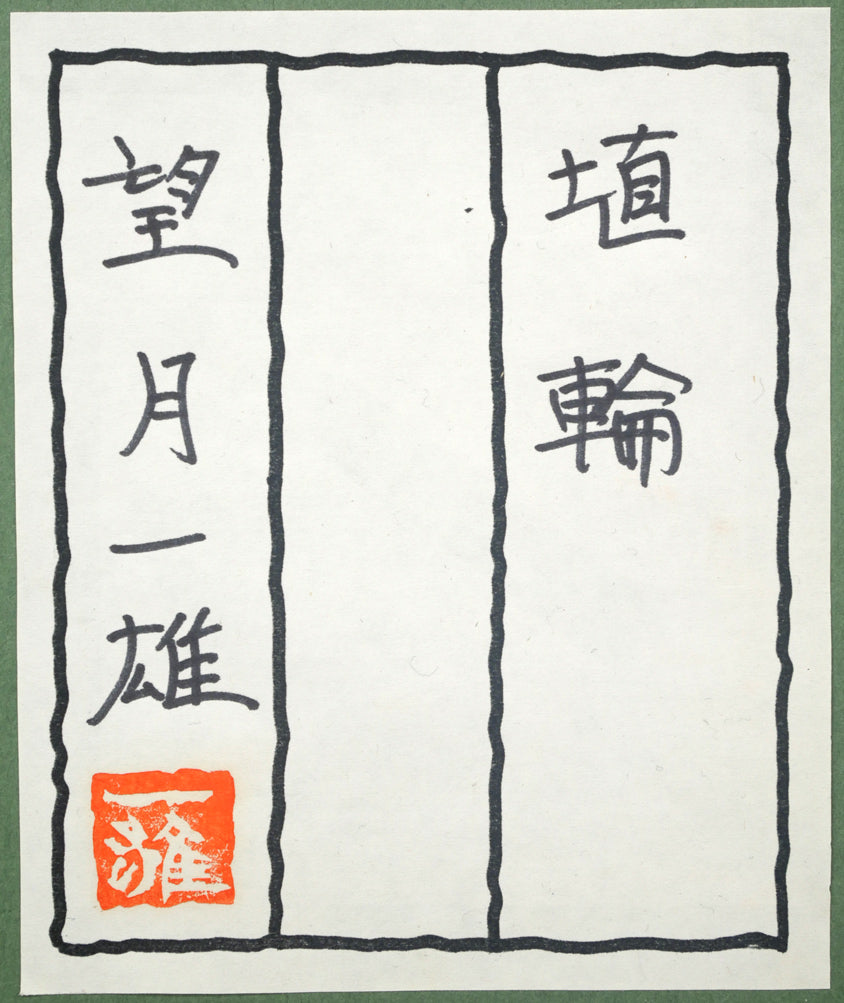 埴輪
望月一雄
一雄